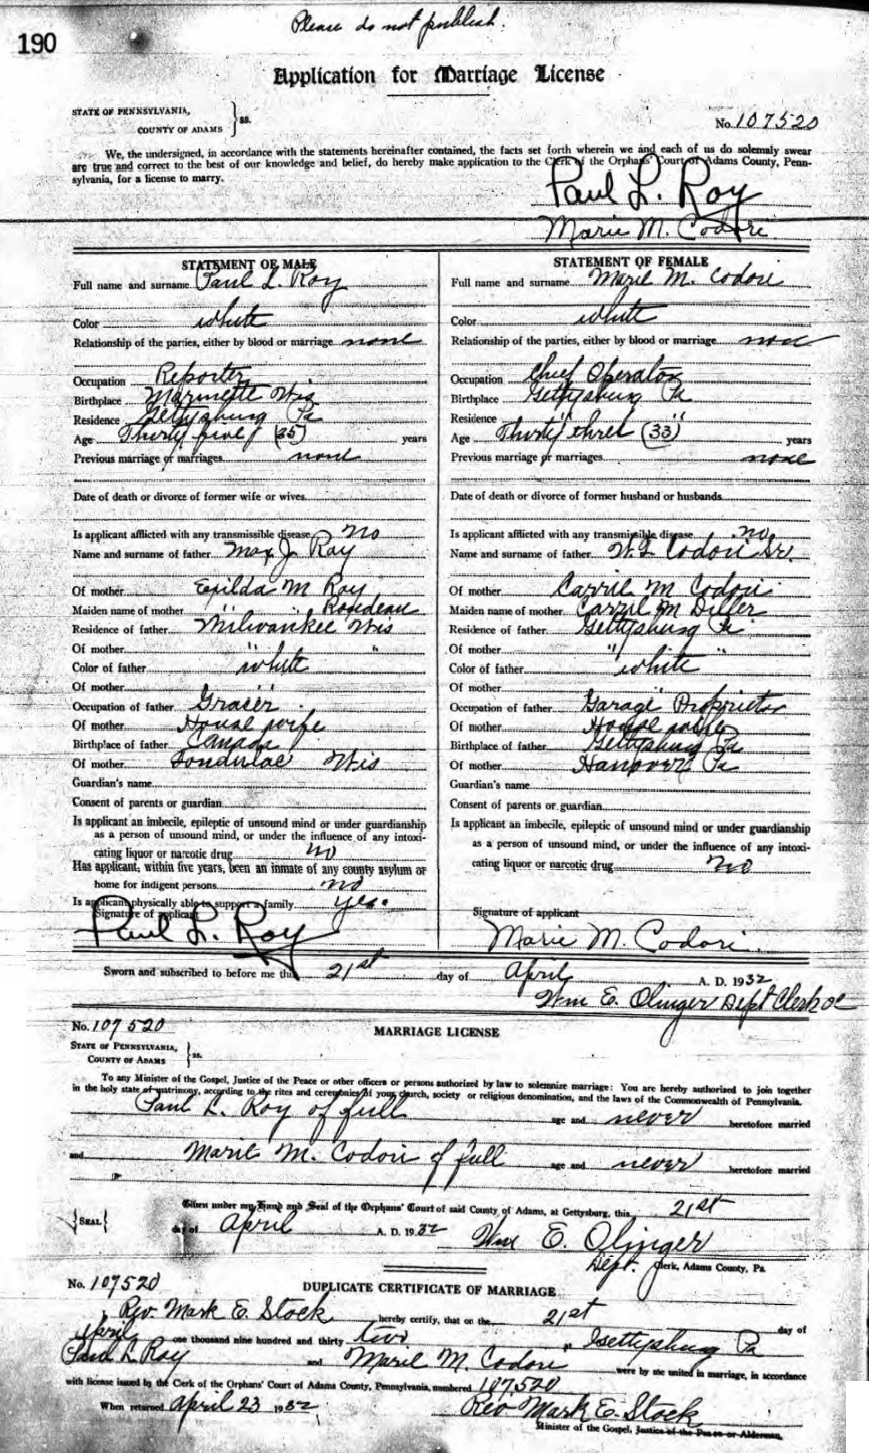 Please do not publish.
190
Application for Marriage License
STATE OF PENNSYLVANIA,
COUNTY OF ADAMS } ss.
No. 107520
We, the undersigned, in accordance with the statements hereinafter contained, the facts set forth wherein we and each of us do solemnly swear
are true and correct to the best of our knowledge and belief, do hereby make application to the Clerk of the Orphans' Court of Adams County, Penn-
sylvania, for a license to marry.
Paul L. Roy
Marie M. Codori
STATEMENT OF MALE
Full name and surname Paul L. Roy
Color white
Relationship of the parties, either by blood or marriage none
Occupation Reporter
Birthplace Marinette Wis
Residence Gettysburg Pa
Age Thirty five (35) years
Previous marriage or marriages none
Date of death or divorce of former wife or wives
Is applicant afflicted with any transmissible disease no
Name and surname of father Max J. Roy
Of mother M Roy
Maiden name of mother " "
Residence of father Milwaukee Wis
Of mother " "
Color of father white
Of mother "
Occupation of father
Of mother House wife
Birthplace of father Canada
Of mother Fondulac Wis
Guardian's name
Consent of parents or guardian
Is applicant an imbecile, epileptic of unsound mind or under guardianship
as a person of unsound mind, or under the influence of any intoxi-
cating liquor or narcotic drug no
Has applicant, within five years, been an inmate of any county asylum or
home for indigent persons no
Is applicant physically able to support a family yes.
Signature of applicant
Paul L. Roy
STATEMENT OF FEMALE
Full name and surname Marie M. Codori
Color white
Relationship of the parties, either by blood or marriage none
Occupation Chief Operator
Birthplace Gettysburg Pa
Residence " "
Age Thirty three (33) years
Previous marriage or marriages none
Date of death or divorce of former husband or husbands
Is applicant afflicted with any transmissible disease no
Name and surname of father W. L Codori Sr.
Of mother Carrie M Codori
Maiden name of mother Carrie M Diller
Residence of father Gettysburg Pa
Of mother " "
Color of father white
Of mother "
Occupation of father Garage Proprietor
Of mother House wife
Birthplace of father Gettysburg Pa
Of mother Hanover Pa
Guardian's name
Consent of parents or guardian
Is applicant an imbecile, epileptic of unsound mind or under guardianship
as a person of unsound mind, or under the influence of any intoxi-
cating liquor or narcotic drug no
Signature of applicant
Marie M. Codori.
Sworn and subscribed to before me this 21st day of April A. D. 1932
Wm E. Olinger Dept Clerk OC
No. 107520
MARRIAGE LICENSE
STATE OF PENNSYLVANIA,
COUNTY OF ADAMS } ss.
To any Minister of the Gospel, Justice of the Peace or other officers or persons authorized by law to solemnize marriage: You are hereby authorized to join together
in the holy state of matrimony, according to the rites and ceremonies of your church, society or religious denomination, and the laws of the Commonwealth of Pennsylvania.
Paul L. Roy of full age and never heretofore married
and Marie M. Codori of full age and never heretofore married
Given under my Hand and Seal of the Orphans' Court of said County of Adams, at Gettysburg, this 21st
{SEAL} day of April A. D. 1932 Wm E. Olinger
Dept. Clerk, Adams County, Pa.
No. 107520
DUPLICATE CERTIFICATE OF MARRIAGE
I, Rev. Mark E. Stock hereby certify, that on the 21st day of
April one thousand nine hundred and thirty two at Gettysburg Pa
Paul L. Roy and Marie M. Codori were by me united in marriage, in accordance
with license issued by the Clerk of the Orphans' Court of Adams County, Pennsylvania, numbered 107,520
When returned April 23 1932 Rev. Mark E. Stock
Minister of the Gospel, Justice of the Peace or Alderman.